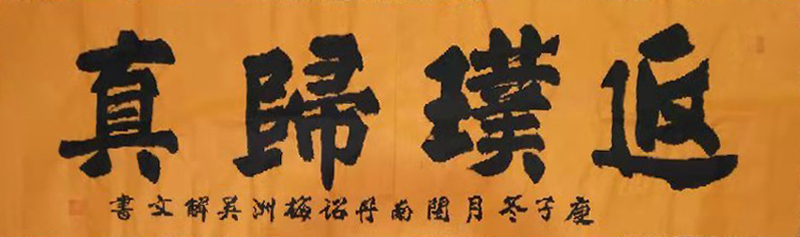 返璞歸真
庚子冬月閩南丹诏梅洲吴解文書